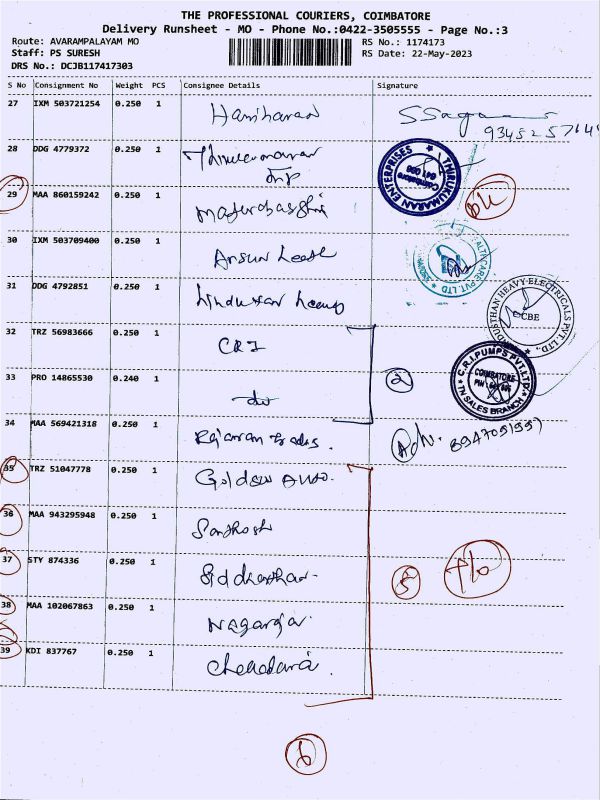 THE PROFESSIONAL COURIERS, COIMBATORE
Delivery Runsheet - MO - Phone No.:0422-3505555 - Page No.:3
Route: AVARAMPALAYAM MO
RS No.: 1174173
Staff: PS SURESH
RS Date: 22-May-2023
DRS No.: DCJB117417303
S No Consignment No Weight PCS Consignee Details Signature
27 IXM 503721254 0.250 1 Hariharan
28 DDG 4779372 0.250 1
THIRUKUMARAN ENTERPRISES
Coimbatore
29 MAA 860159242 0.250 1
30 IXM 503709400 0.250 1
31 DDG 4792851 0.250 1 hindustan heavy
HINDUSTHAN HEAVY-ELECTRICALS PVT. LTD.
CBE
32 TRZ 56983666 0.250 1 CRI
C.R.I.PUMPS PVT.LTD.
COIMBATORE
TN SALES BRANCH
33 PRO 14865530 0.240 1 do
2
34 MAA 569421318 0.250 1
35 TRZ 51047778 0.250 1 Golden Auto.
36 MAA 943295948 0.250 1 Santhosh
37 STY 874336 0.250 1 Siddharthan
5
38 MAA 102067863 0.250 1 Nagaraja
39 KDI 837767 0.250 1
6